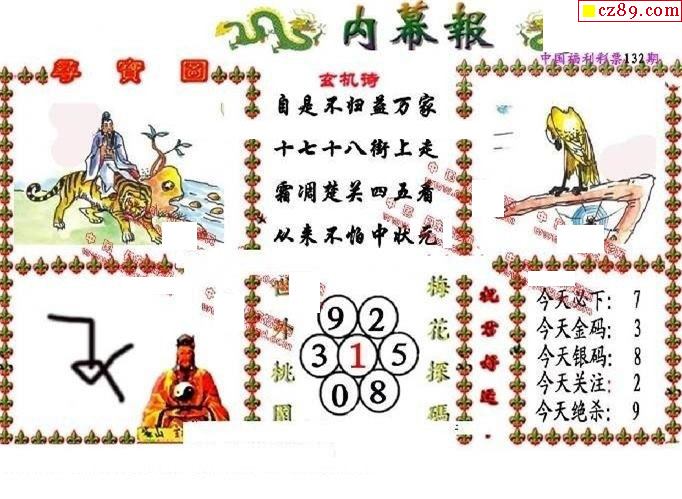 cz89.com
内幕報
中国福利彩票132期
尋寳圖
玄机诗
自是不归益万家
十七十八街上走
霜凋楚关四五看
从来不怕中状元
世外桃園
9 2
3 1 5
0 8
梅花探碼
祝君好运
今天必下: 7
今天金码: 3
今天银码: 8
今天关注: 2
今天绝杀: 9